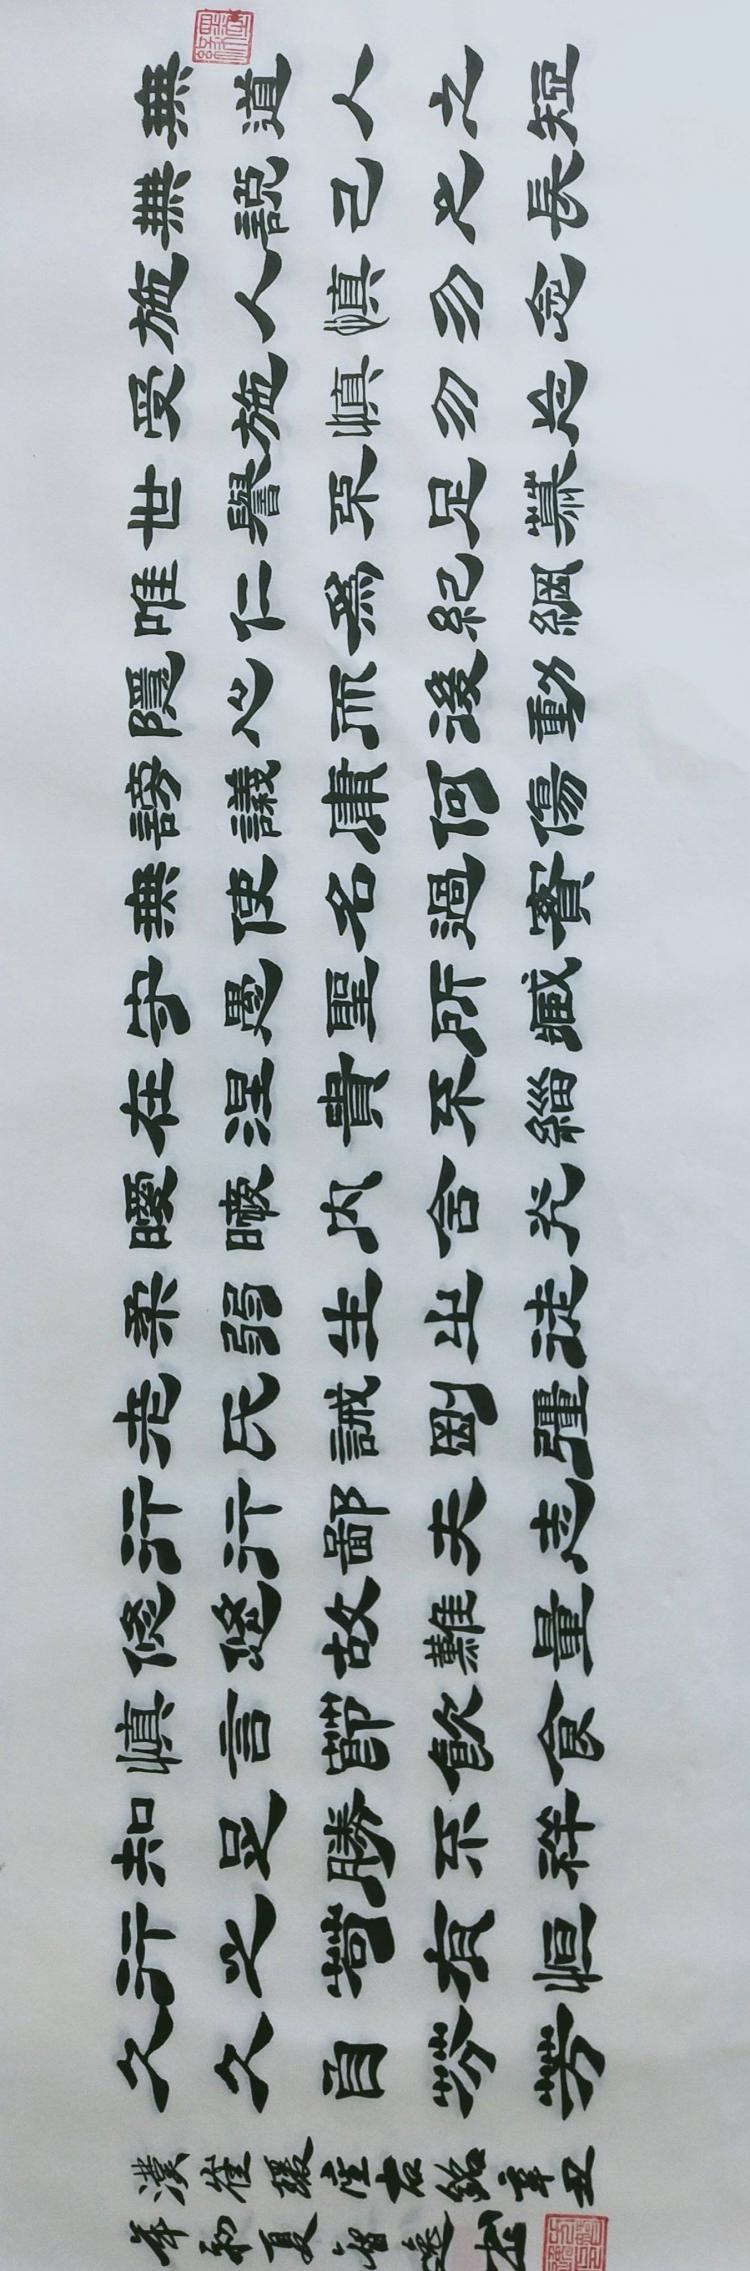 無道人之短
無說己之長
施人慎勿念
受施慎勿忘
世譽不足慕
唯仁為紀綱
隱心而後動
謗議庸何傷
無使名過實
守愚聖所臧
在涅貴不緇
曖曖內含光
柔弱生之徒
老氏誡剛彊
行行鄙夫志
悠悠故難量
慎言節飲食
知足勝不祥
行之苟有恒
久久自芬芳
漢崔瑗座右銘辛丑
年初夏智遠書